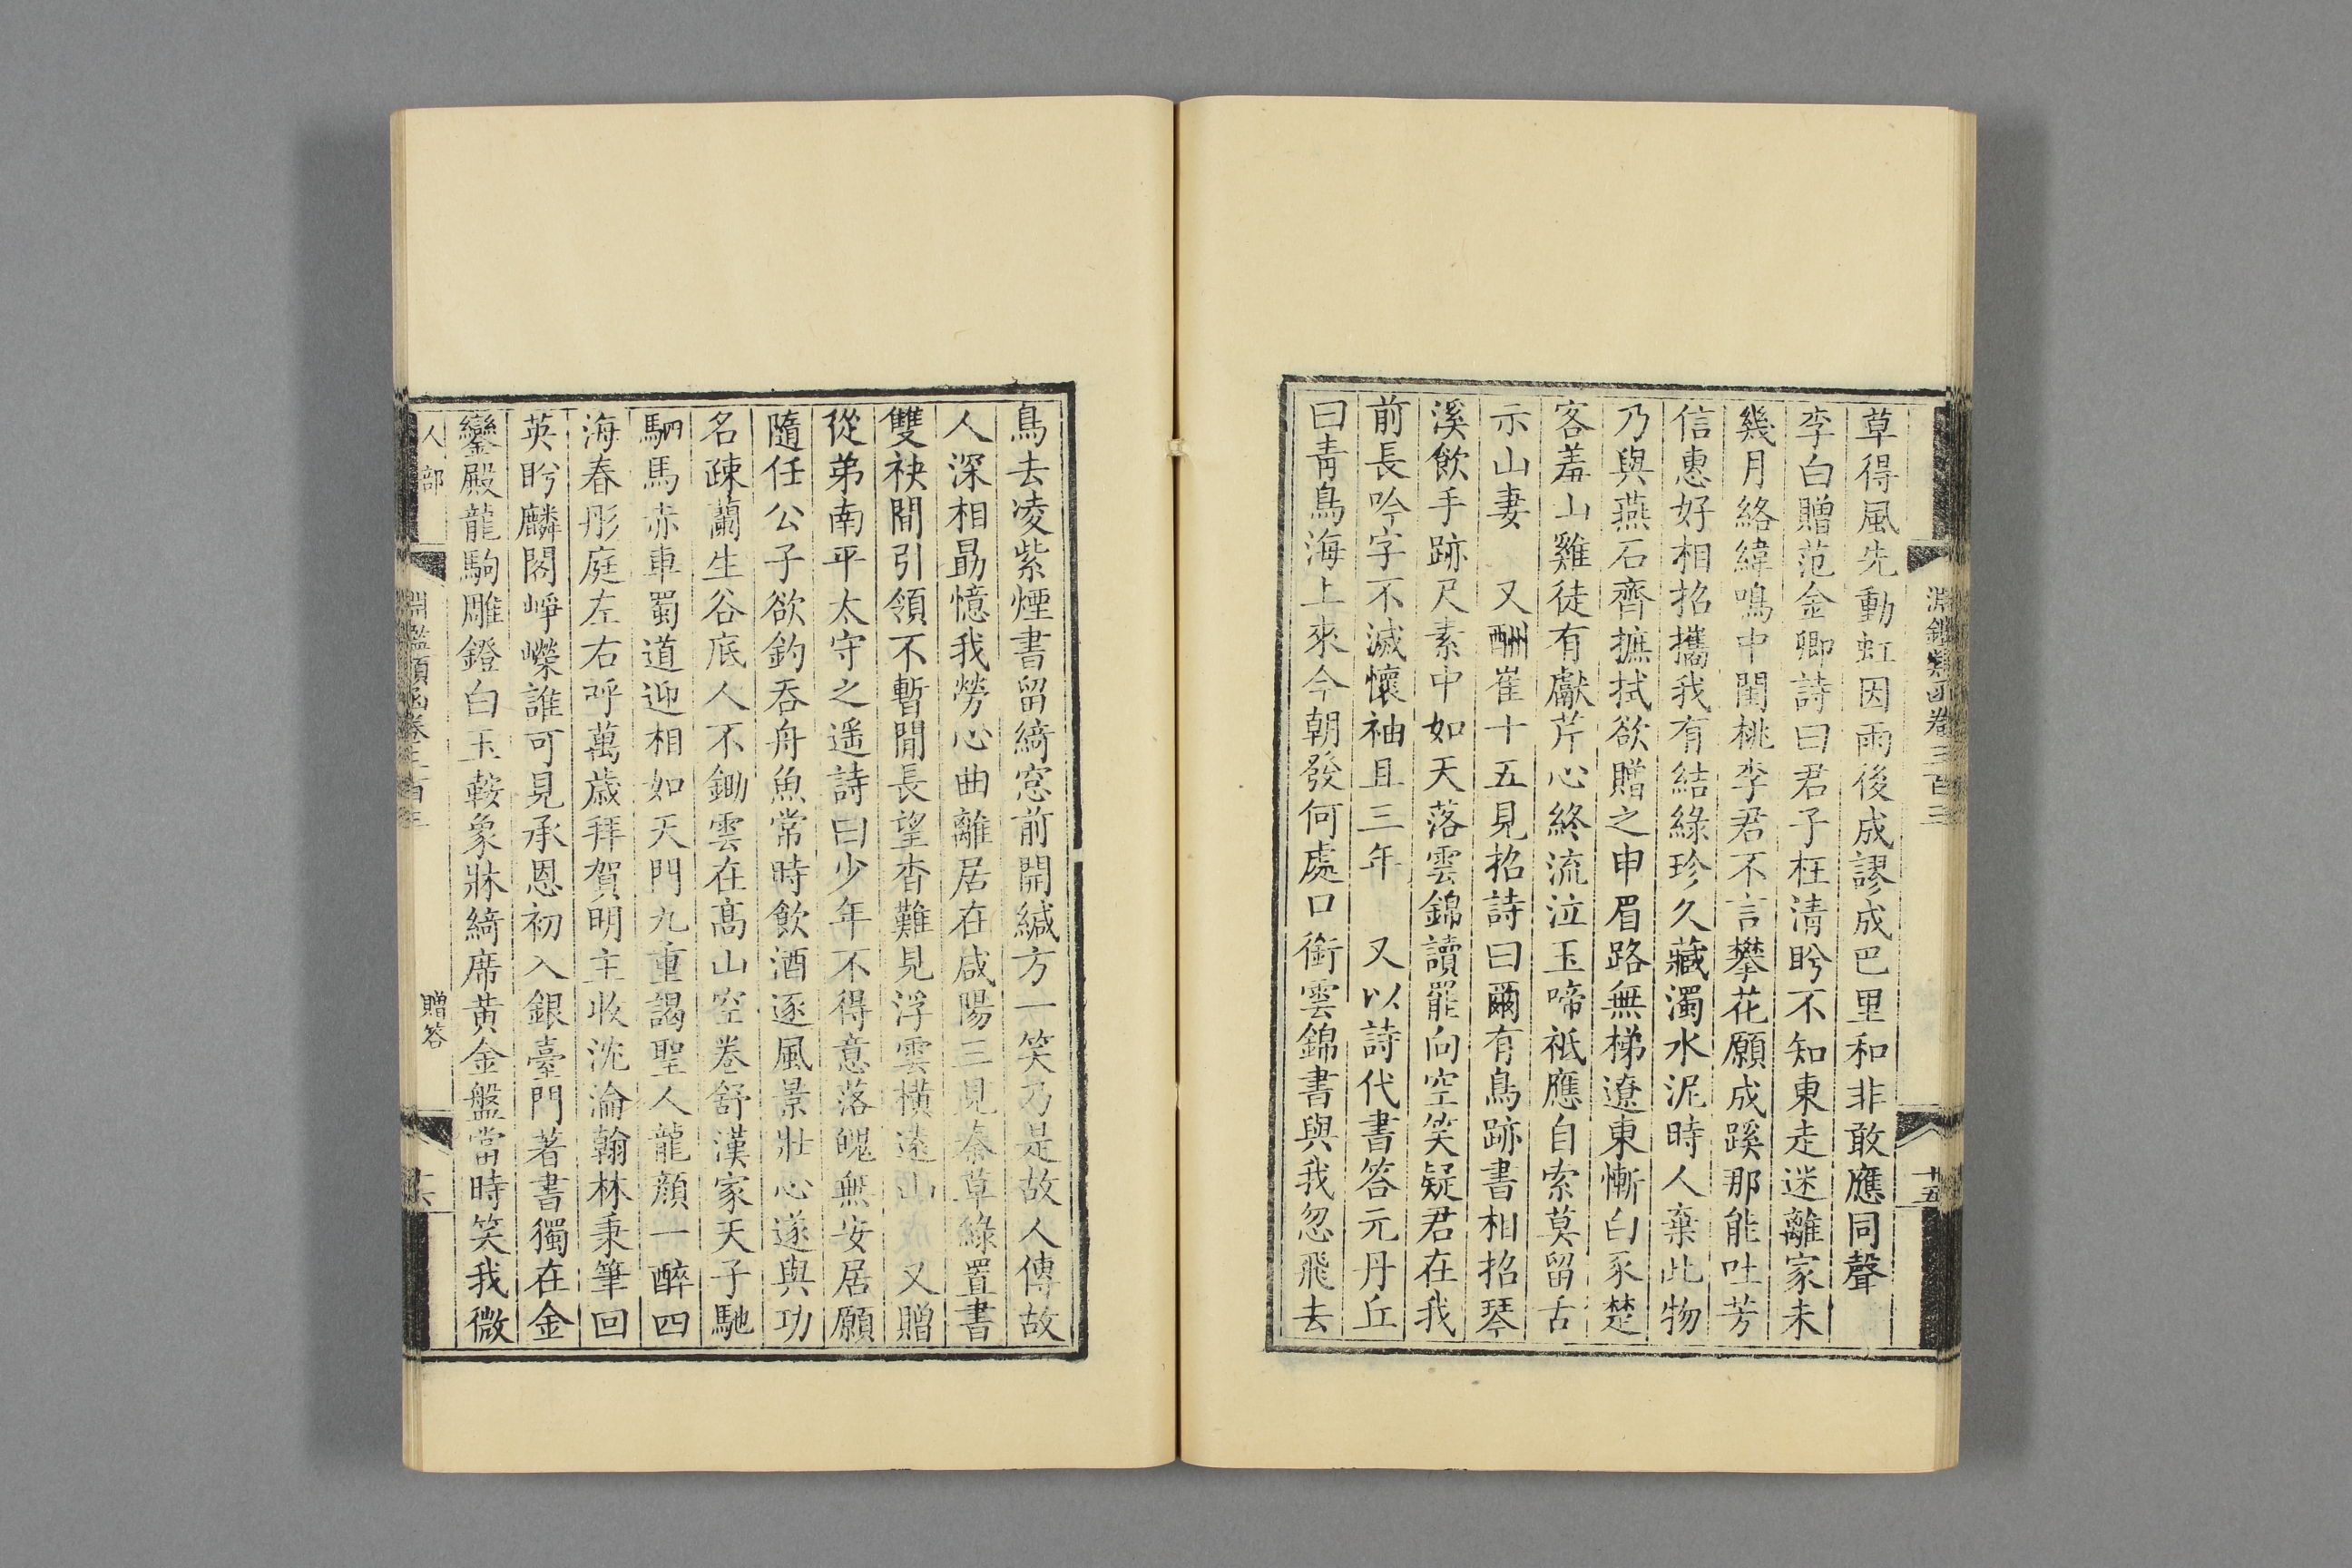 淵鑑類函卷三百三
十五
草得風先動虹因雨後成謬成巴里和非敢應同聲
李白贈范金卿詩曰君子枉清盻不知東走迷離家未
幾月絡緯鳴中閨桃李君不言攀花願成蹊那能吐芳
信惠好相招攜我有結綠珍久藏濁水泥時人棄此物
乃與燕石齊摭拭欲贈之申眉路無梯遼東慚白豕楚
客羞山雞徒有獻芹心終流泣玉啼祇應自索莫留舌
示山妻 又酬崔十五見招詩曰爾有鳥跡書相招琴
溪飲手跡尺素中如天落雲錦讀罷向空笑疑君在我
前長吟字不滅懷袖且三年 又以詩代書答元丹丘
曰青鳥海上來今朝發何處口銜雲錦書與我忽飛去
鳥去凌紫煙書留綺窓前開緘方一笑乃是故人傳故
人深相勗憶我勞心曲離居在咸陽三見秦草綠置書
雙袂間引領不暫閒長望杳難見浮雲橫遠山 又贈
從弟南平太守之遥詩曰少年不得意落魄無安居願
隨任公子欲釣吞舟魚常時飲酒逐風景壯心遂與功
名疎蘭生谷底人不鋤雲在髙山空卷舒漢家天子馳
駟馬赤車蜀道迎相如天門九重謁聖人龍顔一醉四
海春彤庭左右呼萬歲拜賀明主收沈淪翰林秉筆回
英盻麟閣崢嶸誰可見承恩初入銀臺門著書獨在金
鑾殿龍駒雕鐙白玉鞍象牀綺席黃金盤當時笑我微
人部
淵鑑類函卷三百三
贈答
十六